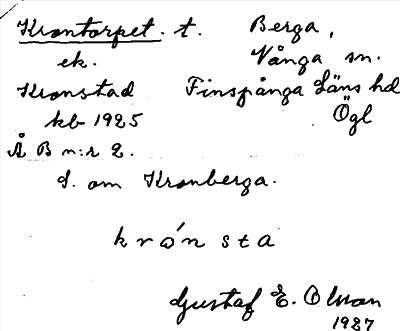 Krontorpet. t. Berga,
ek. Vånga sn.
Kronstad Finspånga Läns hd
kb 1925 Ögl
Å B n:r 2.
S. om Kronberga.
krǻnsta
Gustaf E. Olsson
1927